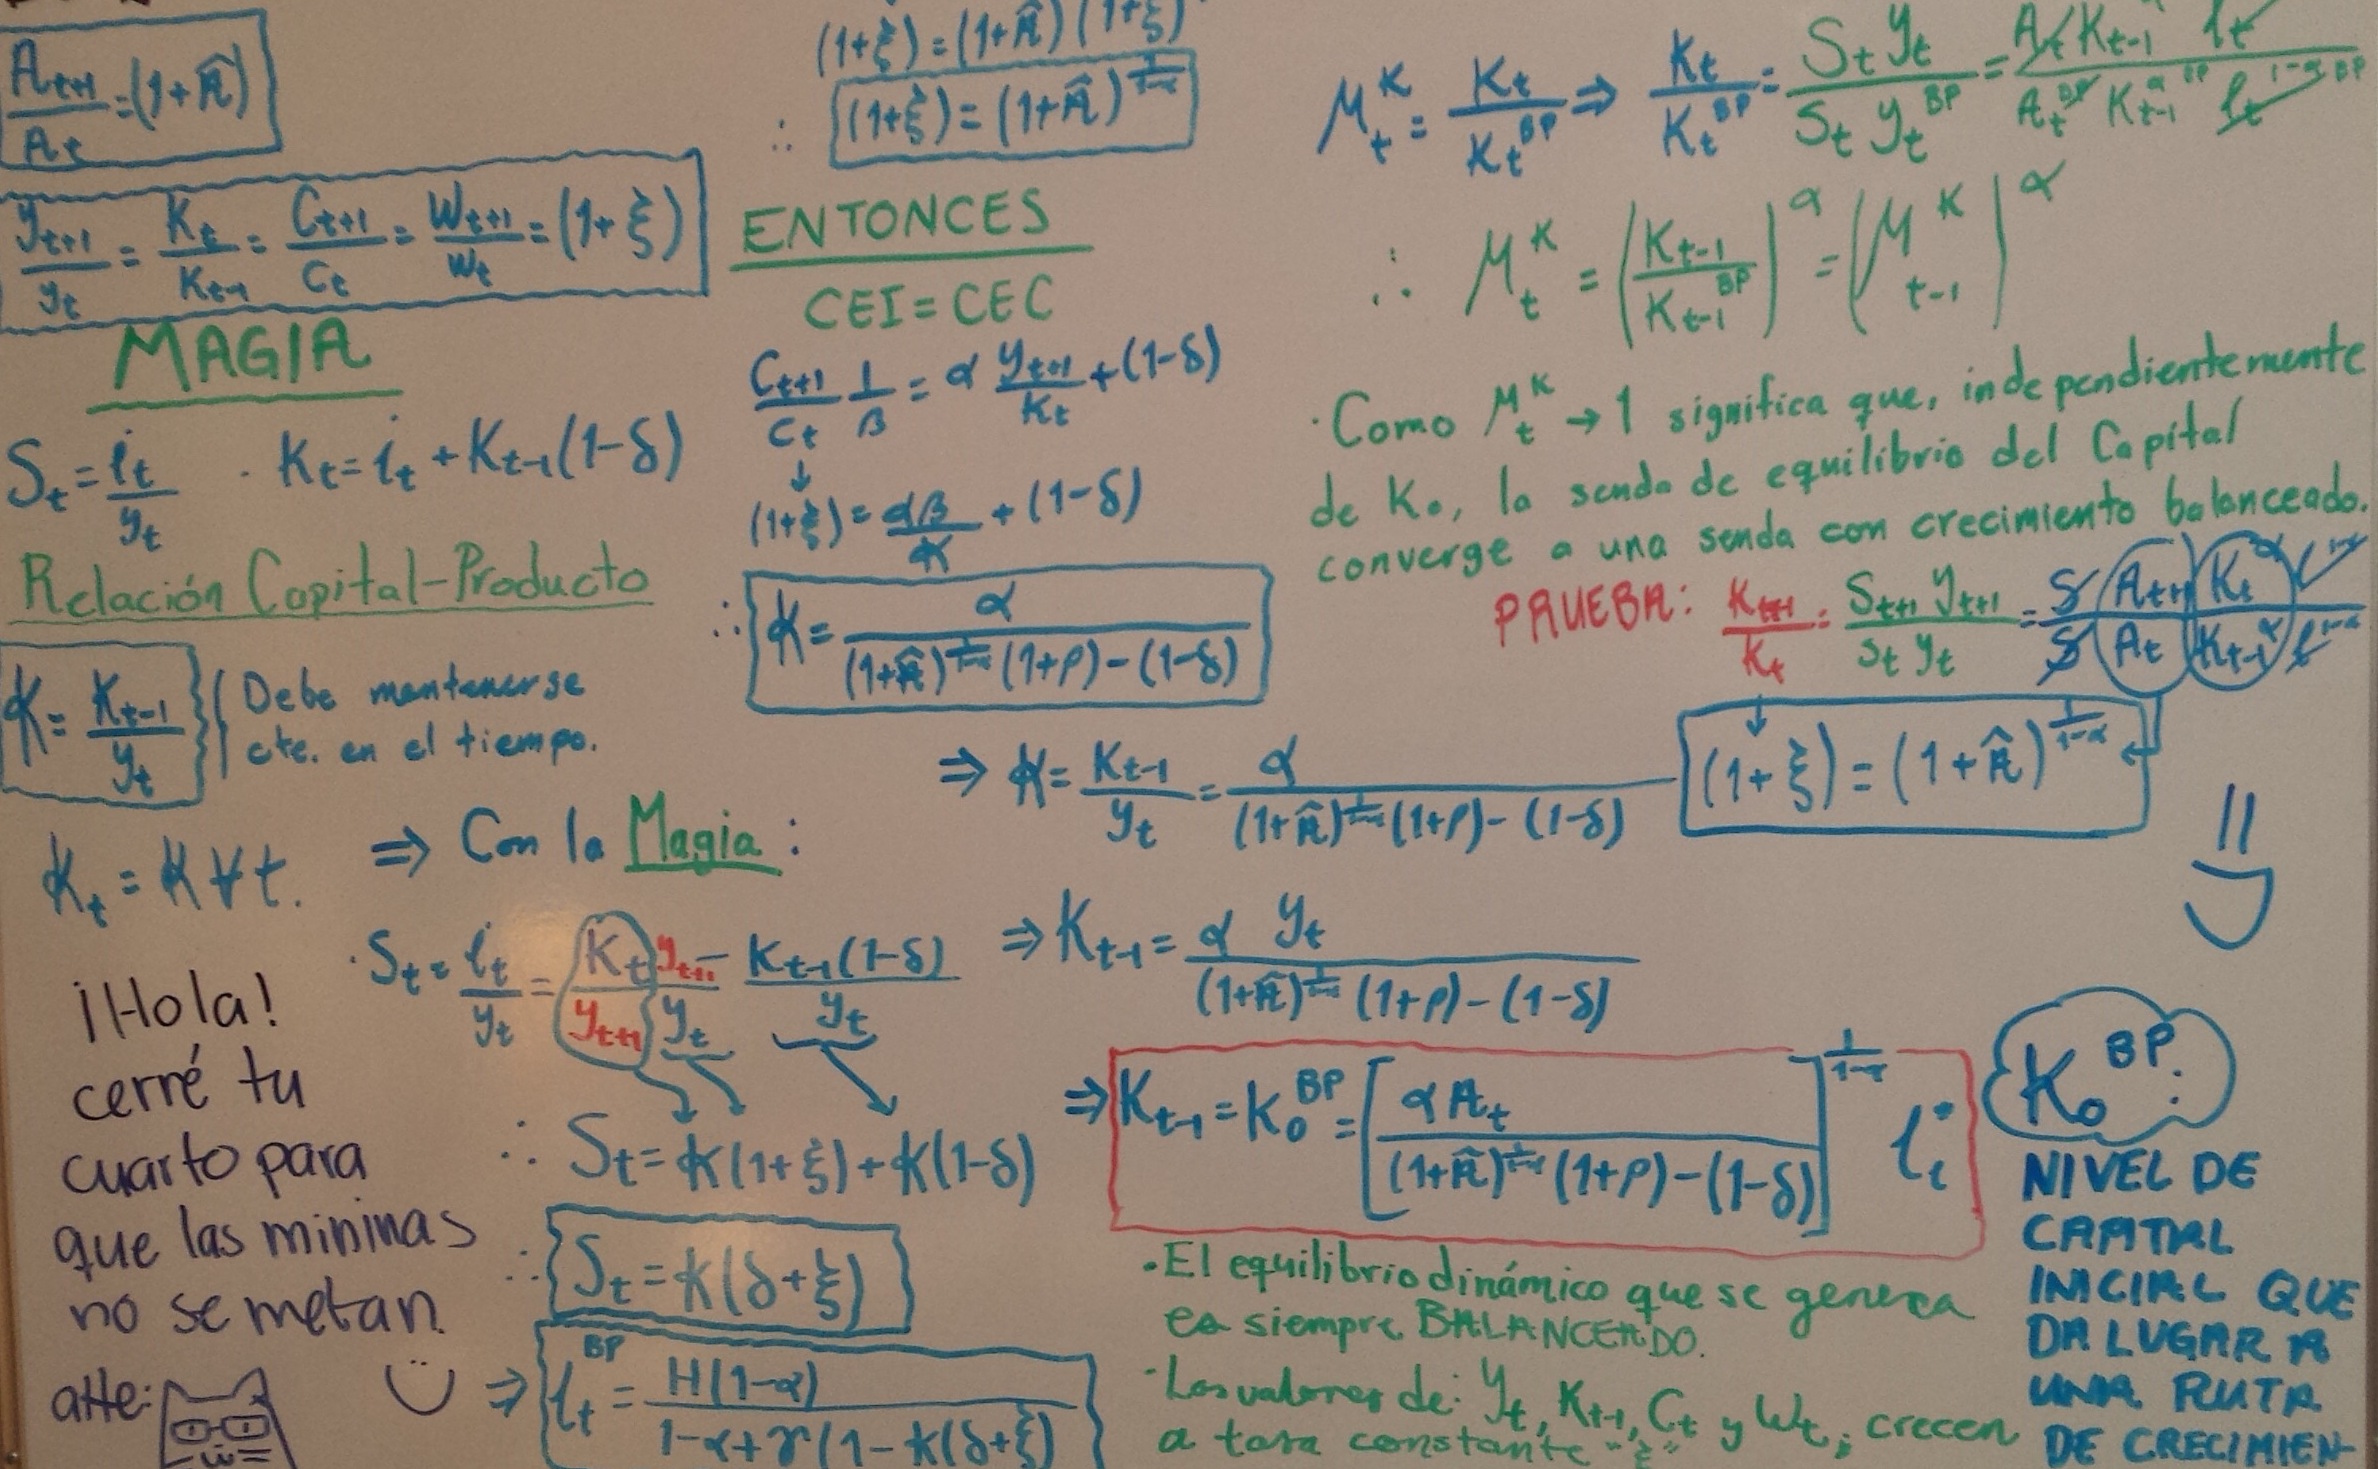 A_{t+1}/A_t = (1+Â)
y_{t+1}/y_t = K_t/K_{t-1} = C_{t+1}/C_t = W_{t+1}/W_t = (1+ξ)
MAGIA
S_t = i_t/y_t · K_t = i_t + K_{t-1}(1-δ)
Relación Capital-Producto
κ = K_{t-1}/y_t } { Debe mantenerse
cte. en el tiempo.
κ_t = κ ∀ t.
⇒ Con la Magia:
· S_t = i_t/y_t = K_t/y_{t+1} y_{t+1}/y_t - K_{t-1}(1-δ)/y_t
∴ S_t = κ(1+ξ) + κ(1-δ)
∴ S_t = κ(δ+ξ)
⇒ l_t^{BP} = H(1-α) / 1-α+γ(1-κ(δ+ξ)
¡Hola!
cerré tu
cuarto para
que las mininas
no se metan
atte:
(1+ξ) = (1+Â)(1+ξ)
∴ (1+ξ) = (1+Â)^{1/1-α}
ENTONCES
CEI = CEC
C_{t+1}/C_t 1/β = α y_{t+1}/K_t + (1-δ)
↓
(1+ξ) = αβ/κ + (1-δ)
∴ κ = α / (1+Â)^{1/1-α}(1+ρ) - (1-δ)
⇒ κ = K_{t-1}/y_t = α / (1+Â)^{1/1-α}(1+ρ) - (1-δ)
⇒ K_{t-1} = α y_t / (1+Â)^{1/1-α}(1+ρ) - (1-δ)
⇒ K_{t-1} = K_0^{BP} = [αA_t / (1+Â)^{1/1-α}(1+ρ) - (1-δ)]^{1/1-α}
· El equilibrio dinámico que se genera
es siempre BALANCEADO.
· Los valores de: y_t, K_{t-1}, C_t y W_t; crecen
a tasa constante "ξ"
M_t^K = K_t/K_t^{BP} ⇒ K_t/K_t^{BP} = S_t y_t / S_t y_t^{BP} = A_t K_{t-1} l_t / A_t^{BP} K_{t-1}^{α BP} l_t^{1-α BP}
∴ M_t^K = (K_{t-1}/K_{t-1}^{BP})^α = (M_{t-1}^K)^α
· Como M_t^K → 1 significa que, independientemente
de K_0, la senda de equilibrio del Capital
converge a una senda con crecimiento balanceado.
PRUEBA: K_{t+1}/K_t = S_{t+1} y_{t+1} / S_t y_t = S A_{t+1} K_t^α l^{1-α} / S A_t K_{t-1}^α l^{1-α}
(1+ξ) = (1+Â)^{1/1-α}
K_0^{BP}:
NIVEL DE
CAPITAL
INICIAL QUE
DA LUGAR A
UNA RUTA
DE CRECIMIEN-